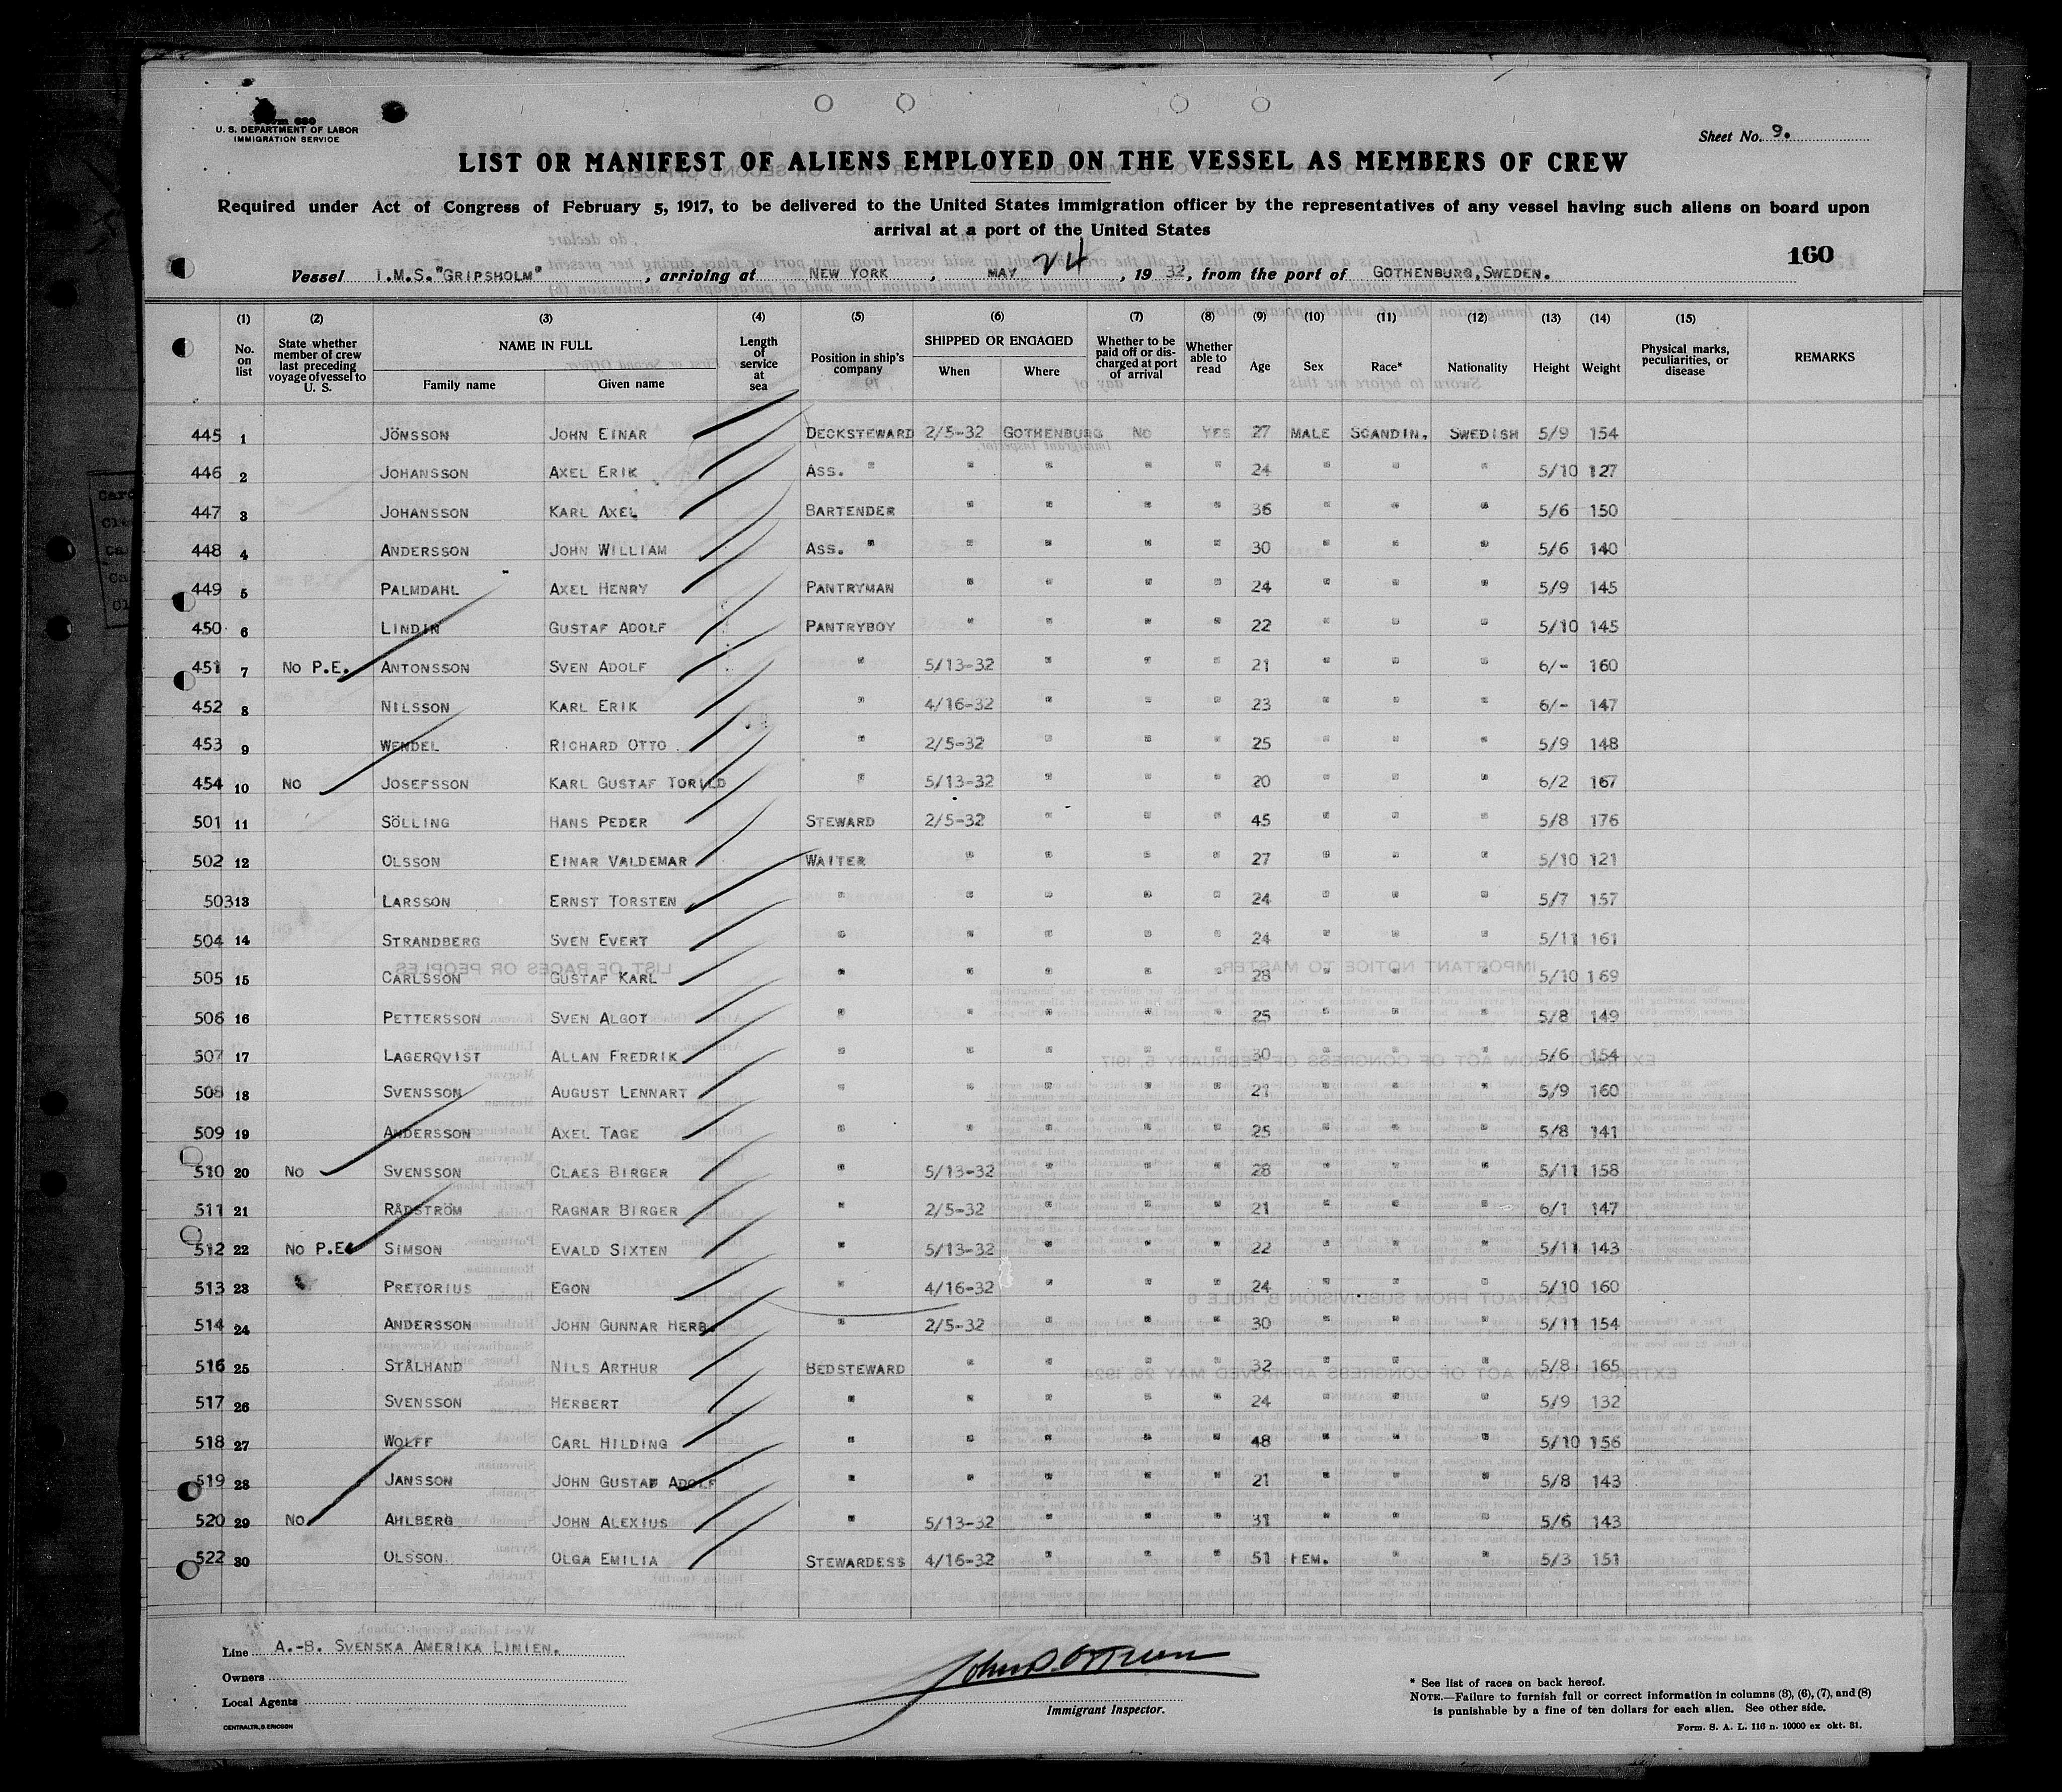 U. S. DEPARTMENT OF LABOR
IMMIGRATION SERVICE
Sheet No. 9.
LIST OR MANIFEST OF ALIENS EMPLOYED ON THE VESSEL AS MEMBERS OF CREW
Required under Act of Congress of February 5, 1917, to be delivered to the United States immigration officer by the representatives of any vessel having such aliens on board upon
arrival at a port of the United States
160
Vessel I.M.S."GRIPSHOLM", arriving at NEW YORK, MAY 24, 1932, from the port of GOTHENBURG, SWEDEN.
(1) (2) (3) (4) (5) (6) (7) (8) (9) (10) (11) (12) (13) (14) (15)
No. on list State whether member of crew last preceding voyage of vessel to U. S. NAME IN FULL Family name Given name Length of service at sea Position in ship's company SHIPPED OR ENGAGED When Where Whether to be paid off or discharged at port of arrival Whether able to read Age Sex Race* Nationality Height Weight Physical marks, peculiarities, or disease REMARKS
445 1 JÖNSSON JOHN EINAR DECKSTEWARD 2/5-32 GOTHENBURG NO YES 27 MALE SCANDIN. SWEDISH 5/9 154
446 2 JOHANSSON AXEL ERIK ASS. " " " " " 24 " " " 5/10 127
447 3 JOHANSSON KARL AXEL BARTENDER " " " " 36 " " " 5/6 150
448 4 ANDERSSON JOHN WILLIAM ASS. " " " " " 30 " " " 5/6 140
449 5 PALMDAHL AXEL HENRY PANTRYMAN " " " " 24 " " " 5/9 145
450 6 LINDIN GUSTAF ADOLF PANTRYBOY " " " " 22 " " " 5/10 145
451 7 NO P.E. ANTONSSON SVEN ADOLF " 5/13-32 " " " 21 " " " 6/- 160
452 8 NILSSON KARL ERIK " 4/16-32 " " " 23 " " " 6/- 147
453 9 WENDEL RICHARD OTTO " 2/5-32 " " " 25 " " " 5/9 148
454 10 NO JOSEFSSON KARL GUSTAF TORILD " 5/13-32 " " " 20 " " " 6/2 167
501 11 SÖLLING HANS PEDER STEWARD 2/5-32 " " " 45 " " " 5/8 176
502 12 OLSSON EINAR VALDEMAR WAITER " " " " 27 " " " 5/10 121
503 13 LARSSON ERNST TORSTEN " " " " " 24 " " " 5/7 157
504 14 STRANDBERG SVEN EVERT " " " " " 24 " " " 5/11 161
505 15 CARLSSON GUSTAF KARL " " " " " 28 " " " 5/10 169
506 16 PETTERSSON SVEN ALGOT " " " " " 25 " " " 5/8 149
507 17 LAGERQVIST ALLAN FREDRIK " " " " " 30 " " " 5/6 154
508 18 SVENSSON AUGUST LENNART " " " " " 21 " " " 5/9 160
509 19 ANDERSSON AXEL TAGE " " " " " 25 " " " 5/8 141
510 20 NO SVENSSON CLAES BIRGER " 5/13-32 " " " 28 " " " 5/11 158
511 21 RÅDSTRÖM RAGNAR BIRGER " 2/5-32 " " " 21 " " " 6/1 147
512 22 NO P.E. SIMSON EVALD SIXTEN " 5/13-32 " " " 22 " " " 5/11 143
513 23 PRETORIUS EGON " 4/16-32 " " " 24 " " " 5/10 160
514 24 ANDERSSON JOHN GUNNAR HERB. " 2/5-32 " " " 30 " " " 5/11 154
516 25 STÅLHAND NILS ARTHUR BEDSTEWARD " " " " 32 " " " 5/8 165
517 26 SVENSSON HERBERT " " " " " 24 " " " 5/9 132
518 27 WOLFF CARL HILDING " " " " " 48 " " " 5/10 156
519 28 JANSSON JOHN GUSTAF ADOLF " " " " " 21 " " " 5/8 143
520 29 NO AHLBERG JOHN ALEXIUS " 5/13-32 " " " 31 " " " 5/6 143
522 30 OLSSON OLGA EMILIA STEWARDESS 4/16-32 " " " 51 FEM. " " 5/3 151
Line A.-B. SVENSKA AMERIKA LINIEN.
Owners
Local Agents
CENTRALTR, G. ERICSON
Immigrant Inspector.
* See list of races on back hereof.
NOTE.—Failure to furnish full or correct information in columns (3), (6), (7), and (8)
is punishable by a fine of ten dollars for each alien. See other side.
Form. S. A. L. 116 n. 10000 ex okt. 31.